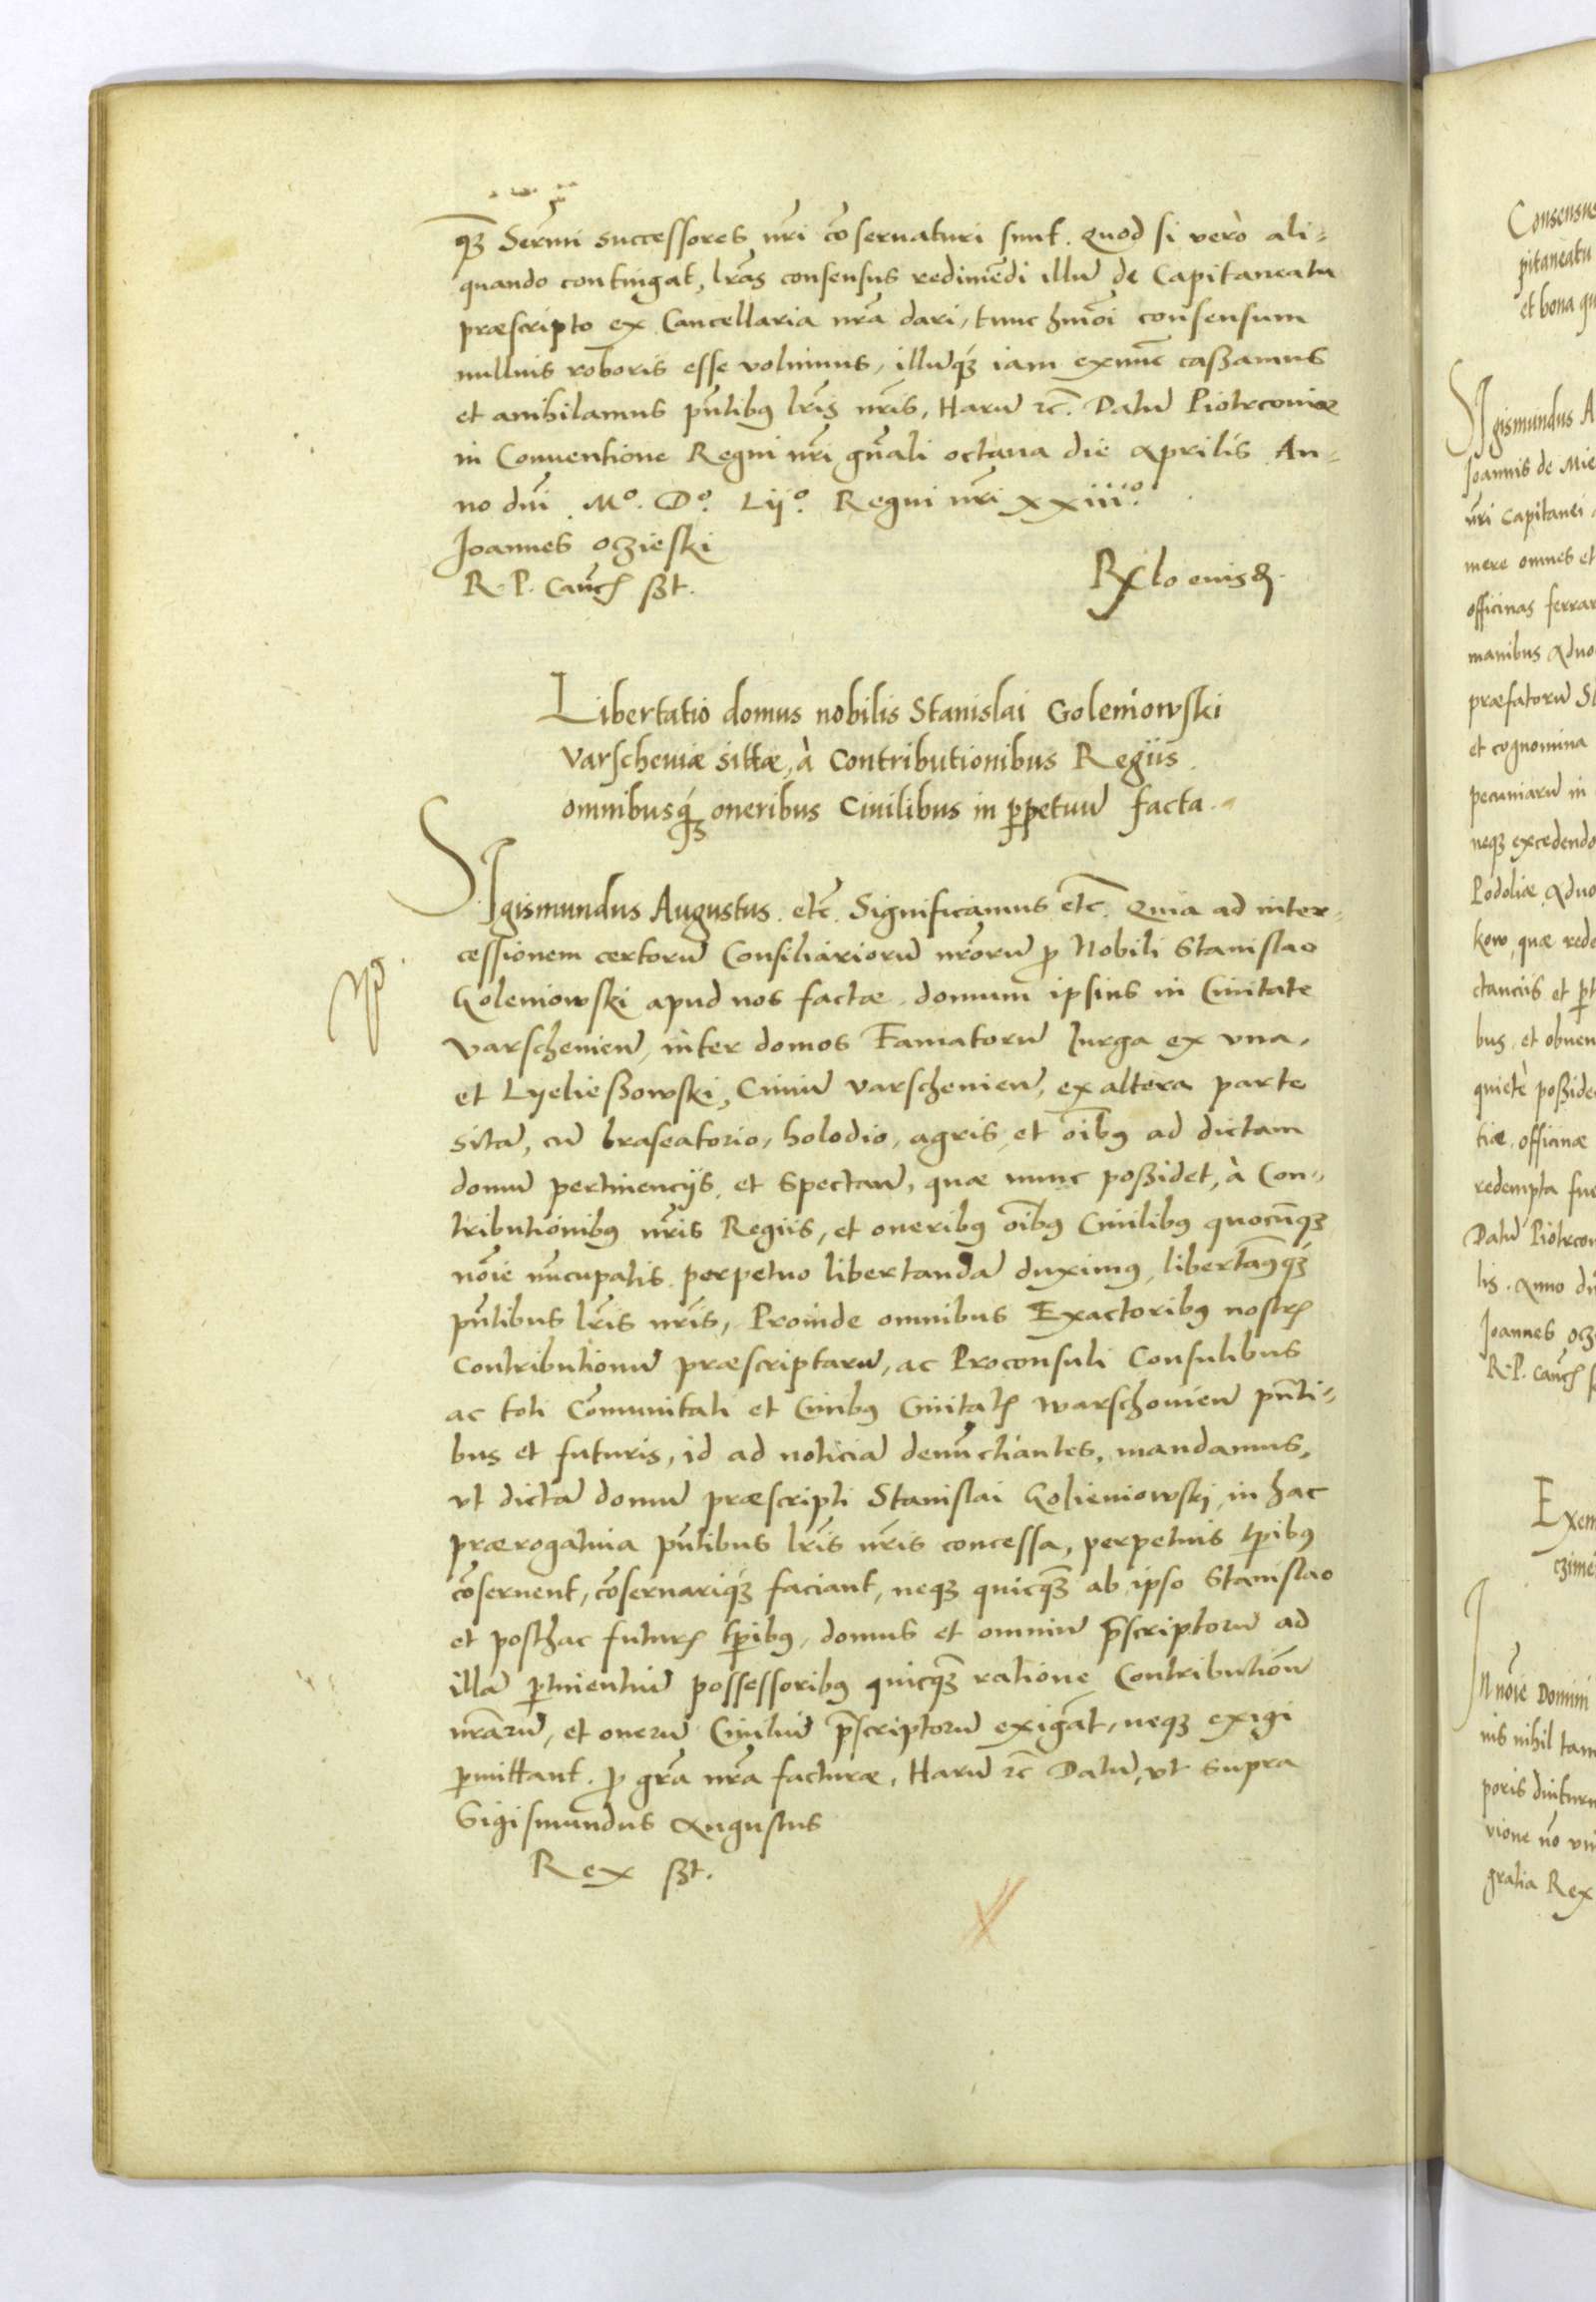 qȝ Sermi successores nri cōseruaturi sunt. Quod si verò ali-
quando contingat, lras consensus redimēdi illū de Capitaneatu
præscripto ex Cancellaria nra dari, tunc hmōi consensum
nullius roboris esse volumus, illūqȝ iam exnunc caßamus
et anihilamus pntibus lris nris, Harū etc. Datū Piotrcouiæ
in Conuentione Regni nri gnali octaua die Aprilis An-
no dni Mº. Dº. Lijº. Regni nri xxiiiº.
Joannes oczieski
R. P. Canc ßt.
Libertatio domus nobilis Stanislai Goleniowski
Varscheuiæ sittæ, à Contributionibus Regiis
omnibusqȝ oneribus Ciuilibus in ppetuū facta.
SIgismundus Augustus. etc. Significamus etc. Quia ad inter-
cessionem certorū Consiliariorū nrorū p Nobili Stanislao
Goleniowski apud nos factæ. domum ipsius in Ciuitate
Varscheuien, inter domos Famatorū Jurga ex vna,
et Lyeließowski, Ciuiū varscheuien, ex altera parte
sitā, cū braseatorio, holodio, agris et oibus ad dictam
domū pertinencijs et spectan, quæ nunc poßidet, à Con-
tributionibus nris Regiis, et oneribus oibus Ciuilibus quocūqȝ
noie nūcupatis perpetuo libertandā duximus, libertamusqȝ
pntibus lris nris, Proinde omnibus Exactoribus nostris
Contributionū præscriptarū, ac Proconsuli Consulibus
ac toti Cōmunitati et Ciuibus Ciuitatis Warschouien pnti-
bus et futuris, id ad noticiā denūctiantes, mandamus,
vt dictā domū præscripti Stanislai Golieniowski, in hac
prærogatiua pntibus lris nris concessa, perpetuis tpibus
cōseruent, cōseruariqȝ faciant, neqȝ quicqȝ ab ipso Stanislao
et posthac futuris tpibus, domus et omniū pscriptorū ad
illā ptinentiū possessoribus quicqȝ ratione Contributionū
nrarū, et onerū Ciuiliū pscriptorū exigāt, neqȝ exigi
pmittant. p gra nra facturæ, Harū etc Datū, vt supra
Sigismundus Augustus
Rex ßt.
Consensus
pitaneatu
et bona qu
SIgismundus A
Joannis de Mie
nri Capitanei
mere omnes et
officinas ferrar
manibus Aduo
præfatorū St
et cognomina
pecuniarū in
neqȝ excedendo
Podoliæ Aduo
kow, quæ rede
ctanciis et pt
bus, et obuen
quietè poßide
tiæ, officinæ
redempta fue
Datū Piotrcou
lis. Anno dn
Joannes ocz
R. P. Canc
Exem
czime
IN noie Domini
nis nihil tam
poris diuturn
vione nō vn
gratia Rex